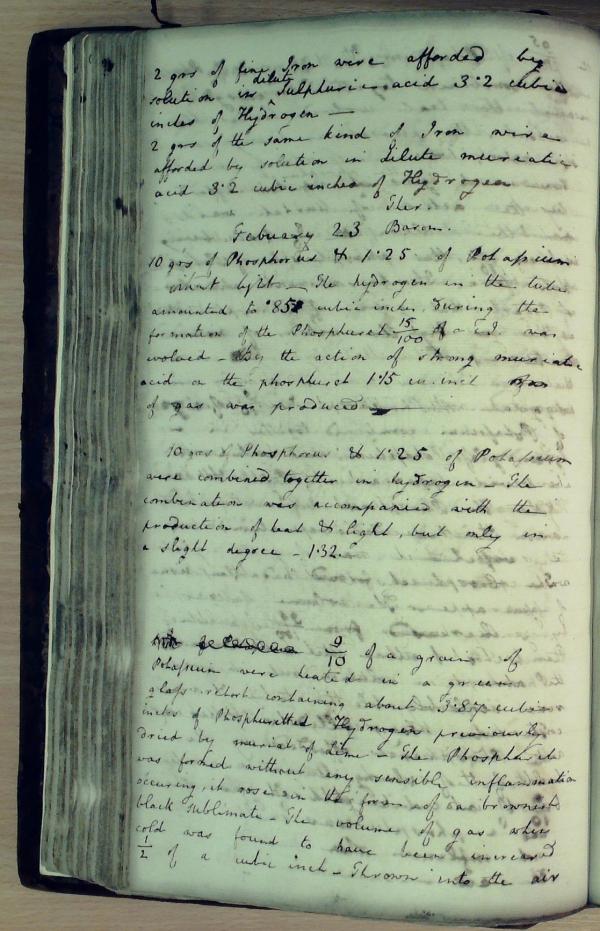 2 grs of fine Iron wire afforded by
solution in dilute Sulphuric acid 3·2 cubic
inches of Hydrogen —
2 grs of the same kind of Iron wire
afforded by solution in dilute muriatic
acid 3·2 cubic inches of Hydrogen
Ther.
Febuary 23 Barom.
10 grs of Phosphorus & 1·25 of Potassium
without light — The hydrogen in the tube
amounted to ·85 cubic inches, During the
formation of the Phosphuret 15/100 of a C.I. was
evolved — By the action of strong muriatic
acid on the phosphuret 1·15 cu. inch
of gas was produced —
10 grs of Phosphorus & 1·25 of Potassium
were combined together in hydrogen — The
combination was accompanied with the
production of heat & light, but only in
a slight degree — 1·32.
9/10 of a grain of
Potassium were heated in a green
glass retort containing about 3·87 cubic
inches of Phosphuretted Hydrogen previously
dried by muriat of lime — The Phosphuret
was formed without any sensible inflammation
occuring, it rose in the form of a brownish
black sublimate — The volume of gas when
cold was found to have been increased
1/2 of a cubic inch — Thrown into the air